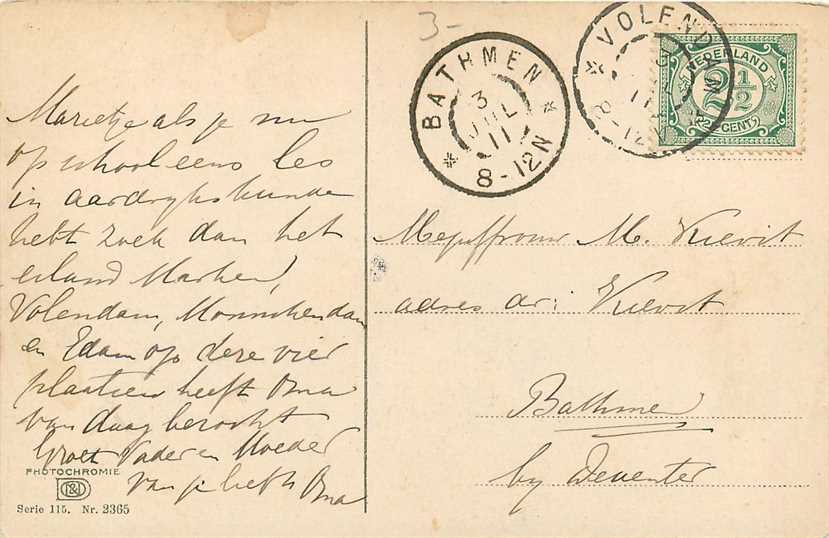 3-
BATHMEN
3
JUL
11
8-12N
VOLENDAM
11
8-12N
NEDERLAND
2½
CENT
Marietje als je nu
op school eens les
in aardrijkskunde
hebt zoek dan het
eiland Marken,
Volendam, Monnikendam
en Edam op deze vier
plaatsen heeft Oma
van daag bezocht
Groet Vader en Moeder
van je liefh Oma
Mejuffrouw M. Kievit
adres dr: Kievit
Bathmen
by Deventer
PHOTOCHROMIE
Serie 115. Nr. 2365